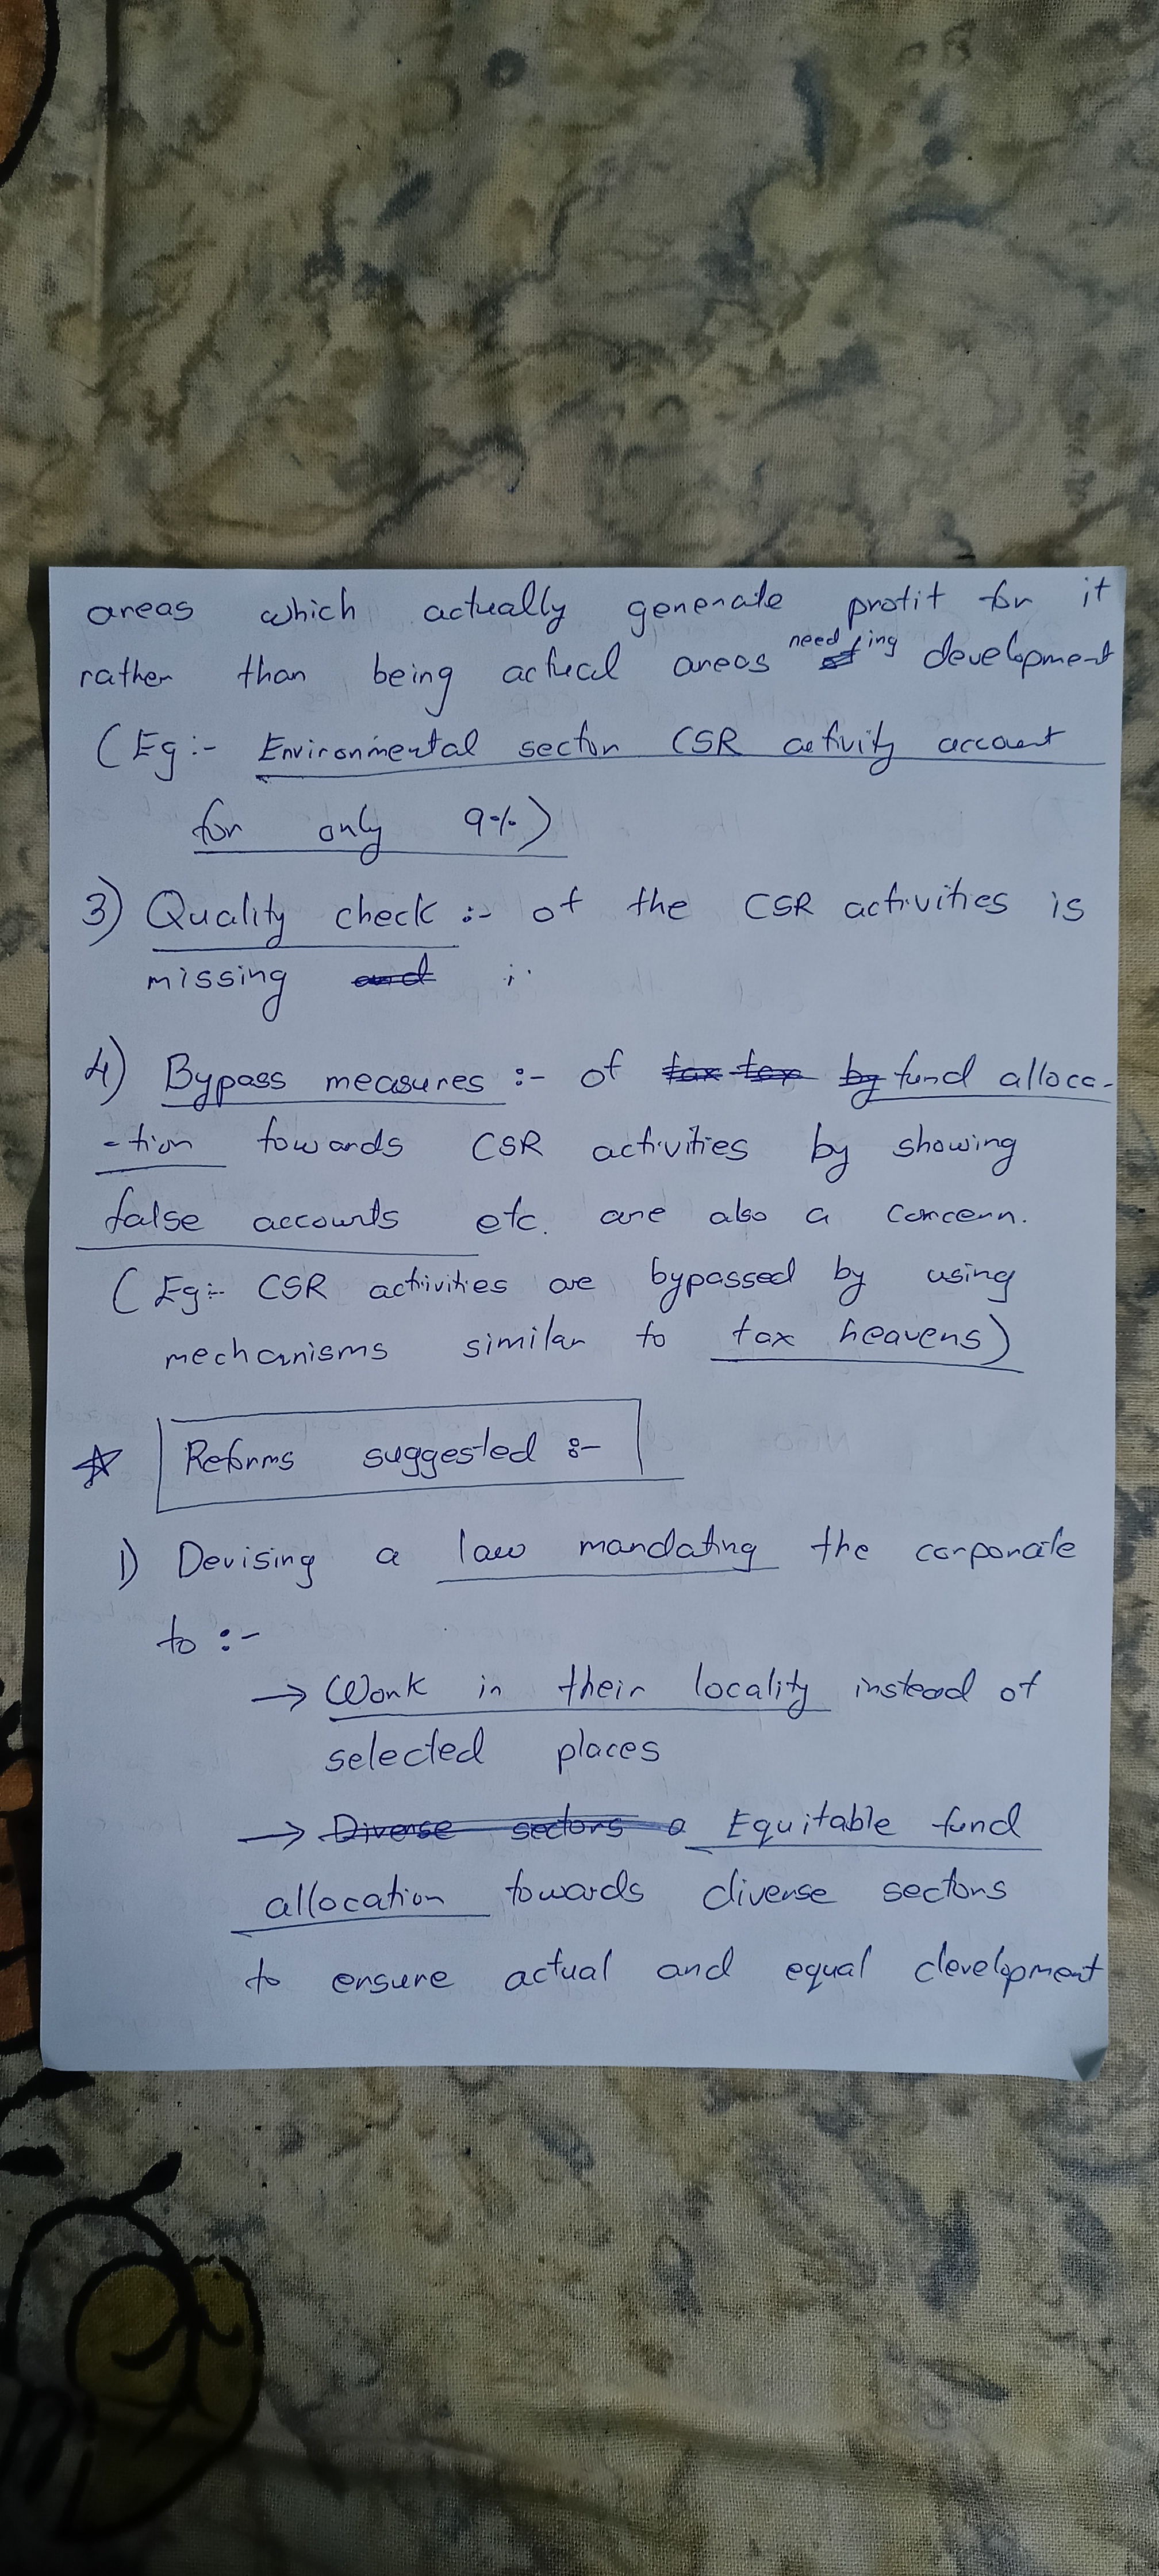 areas which actually generate profit for it
rather than being actual areas needing development
(Eg :- Environmental sector CSR activity account
for only 9%)
3) Quality check :- of the CSR activities is
missing and
4) Bypass measures :- of tax tax by fund alloca-
-tion towards CSR activities by showing
false accounts etc. are also a concern.
(Eg :- CSR activities are bypassed by using
mechanisms similar to tax heavens)
☆ Reforms suggested :-
1) Devising a law mandating the corporate
to :-
→ Work in their locality instead of
selected places
→ Diverse sectors a Equitable fund
allocation towards diverse sectors
to ensure actual and equal development